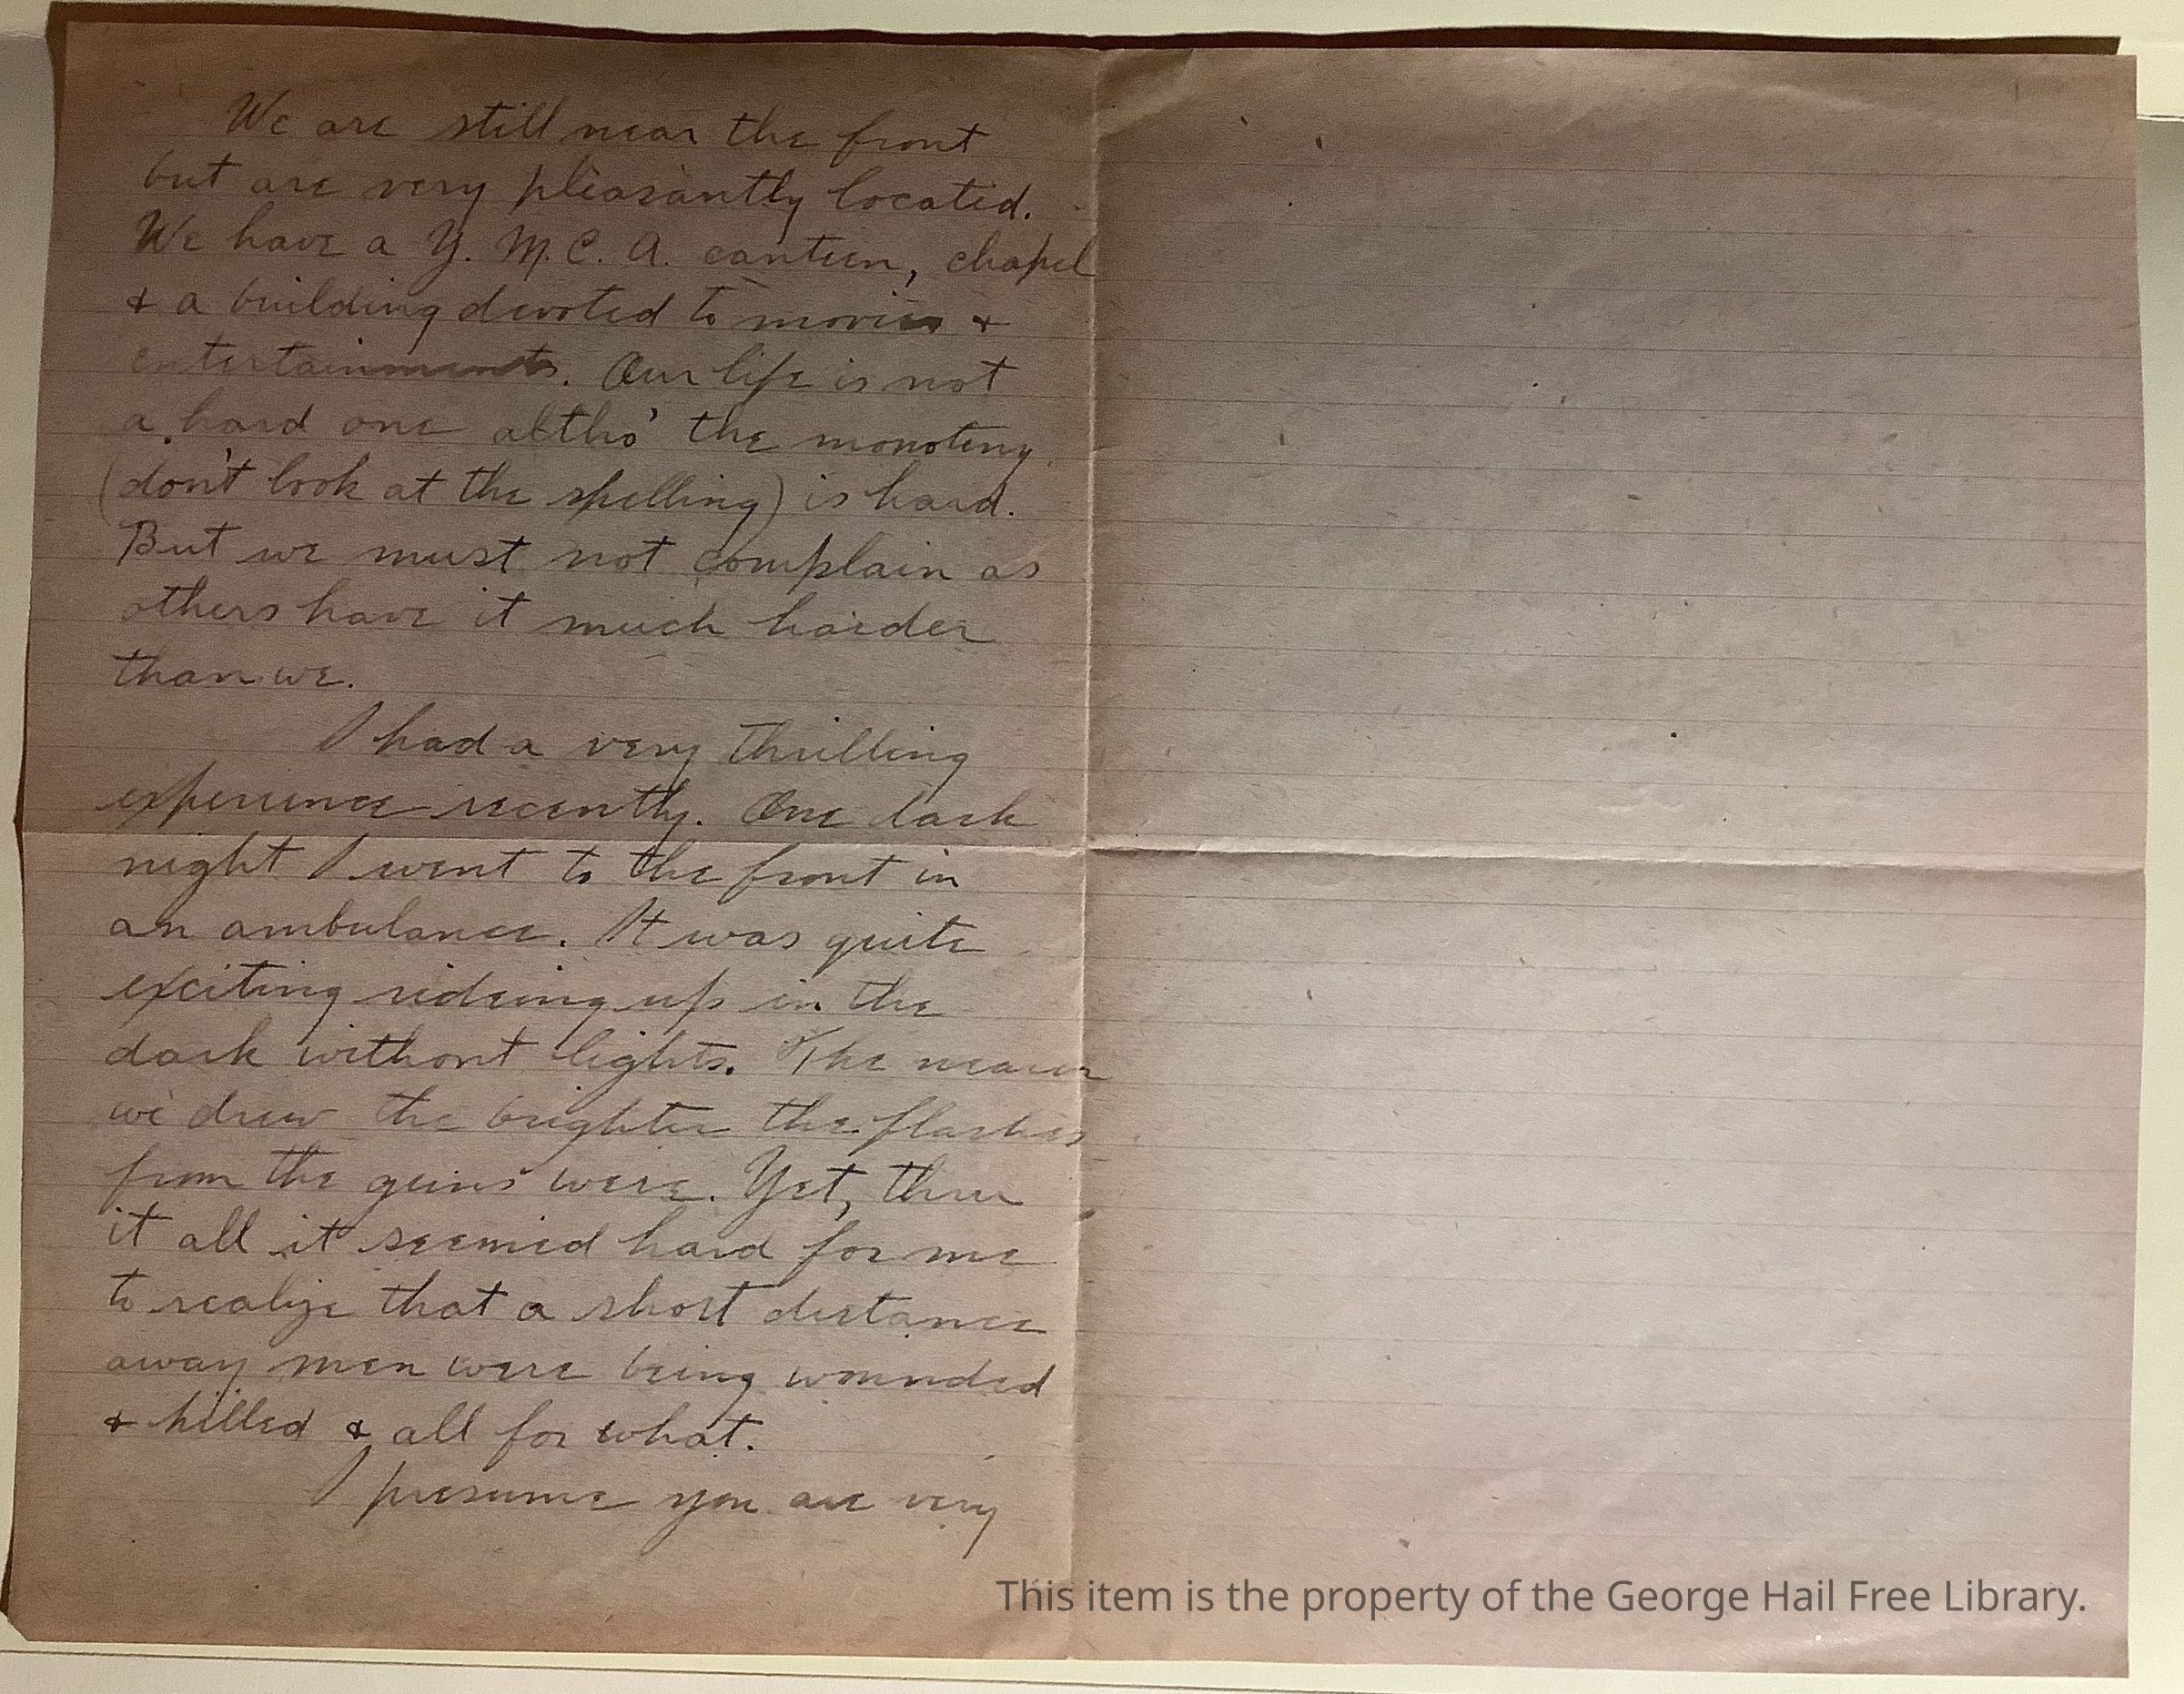 We are still near the front
but are very pleasantly located.
We have a Y. M. C. A. canteen, chapel
& a building devoted to movies &
entertainments. Our life is not
a hard one altho' the monoteny
(don't look at the spelling) is hard.
But we must not complain as
others have it much harder
than we.
I had a very thrilling
experience recently. One dark
night I went to the front in
an ambulance. It was quite
exciting rideing up in the
dark without lights. The nearer
we drew the brighter the flashes
from the guns were. Yet, thru
it all it seemed hard for me
to realize that a short distance
away men were being wounded
& killed & all for what.
I presume you are very
This item is the property of the George Hail Free Library.